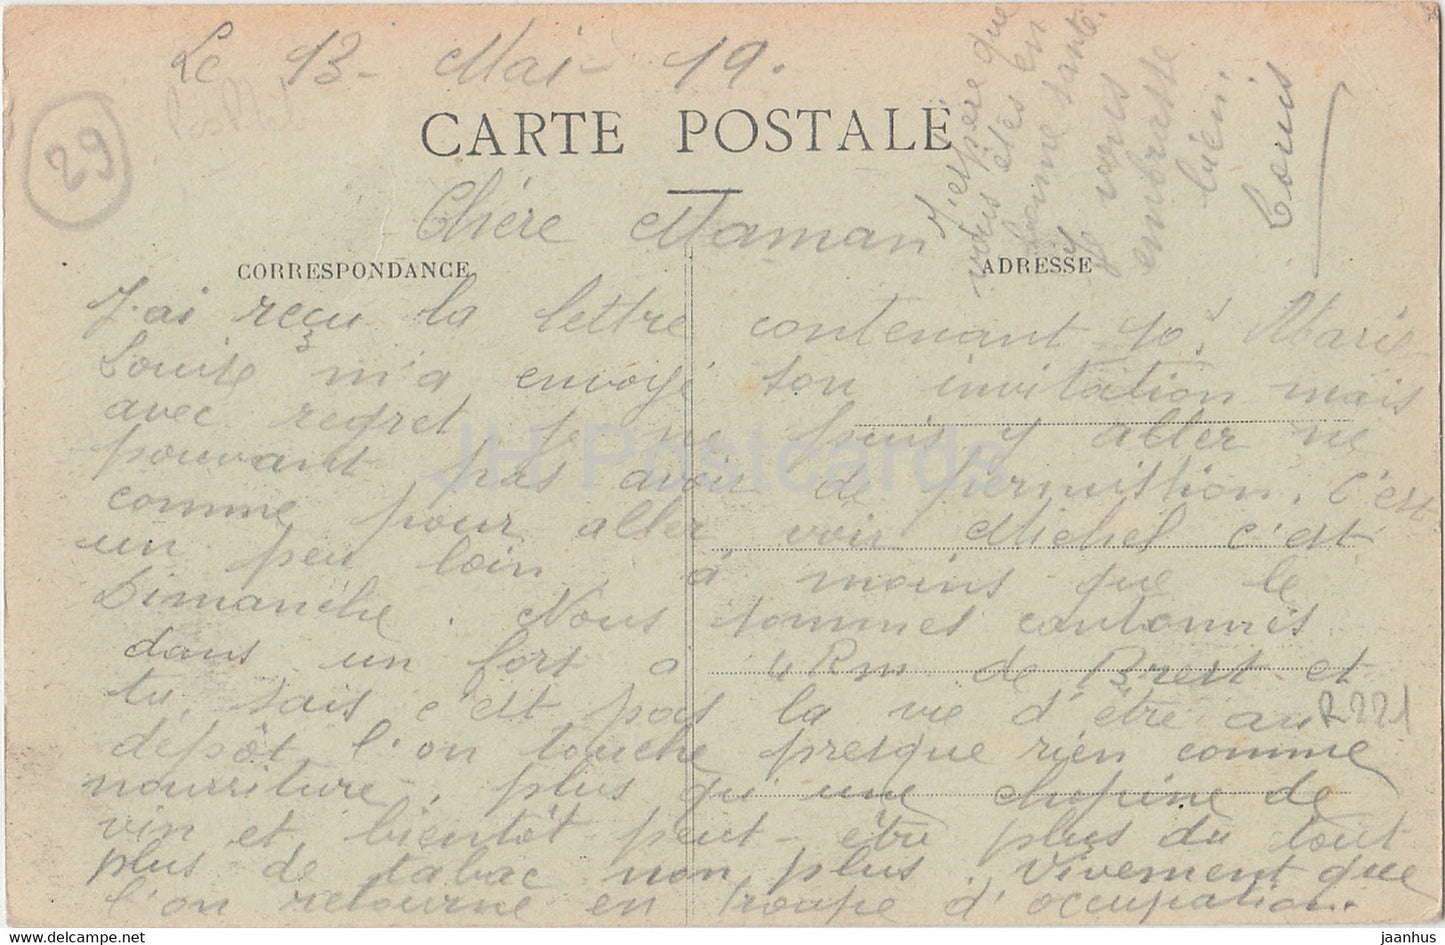 Le 13 - Mai - 19.
29
CARTE POSTALE
Chère Maman
CORRESPONDANCE
ADRESSE
J'ai reçu la lettre contenant 10f Marie
Louise m'a envoyé son invitation mais
avec regret je ne puis y aller ne
pouvant pas avoir de permission. C'est
comme pour aller voir Michel c'est
un peu loin, à moins que le
Dimanche. Nous sommes cantonnés
dans un fort à 4 Km de Brest et
tu sais c'est pas la vie d'être au
dépôt, l'on touche presque rien comme
nourriture, plus qu'une chopine de
vin et bientôt peut-être plus du tout
plus de tabac non plus. Vivement que
l'on retourne en troupe d'occupation.
J'espère que
vous êtes en
bonne santé.
Je vous
embrasse
bien.
Louis
R221
JH Postcards
www.delcampe.net
jaanhus